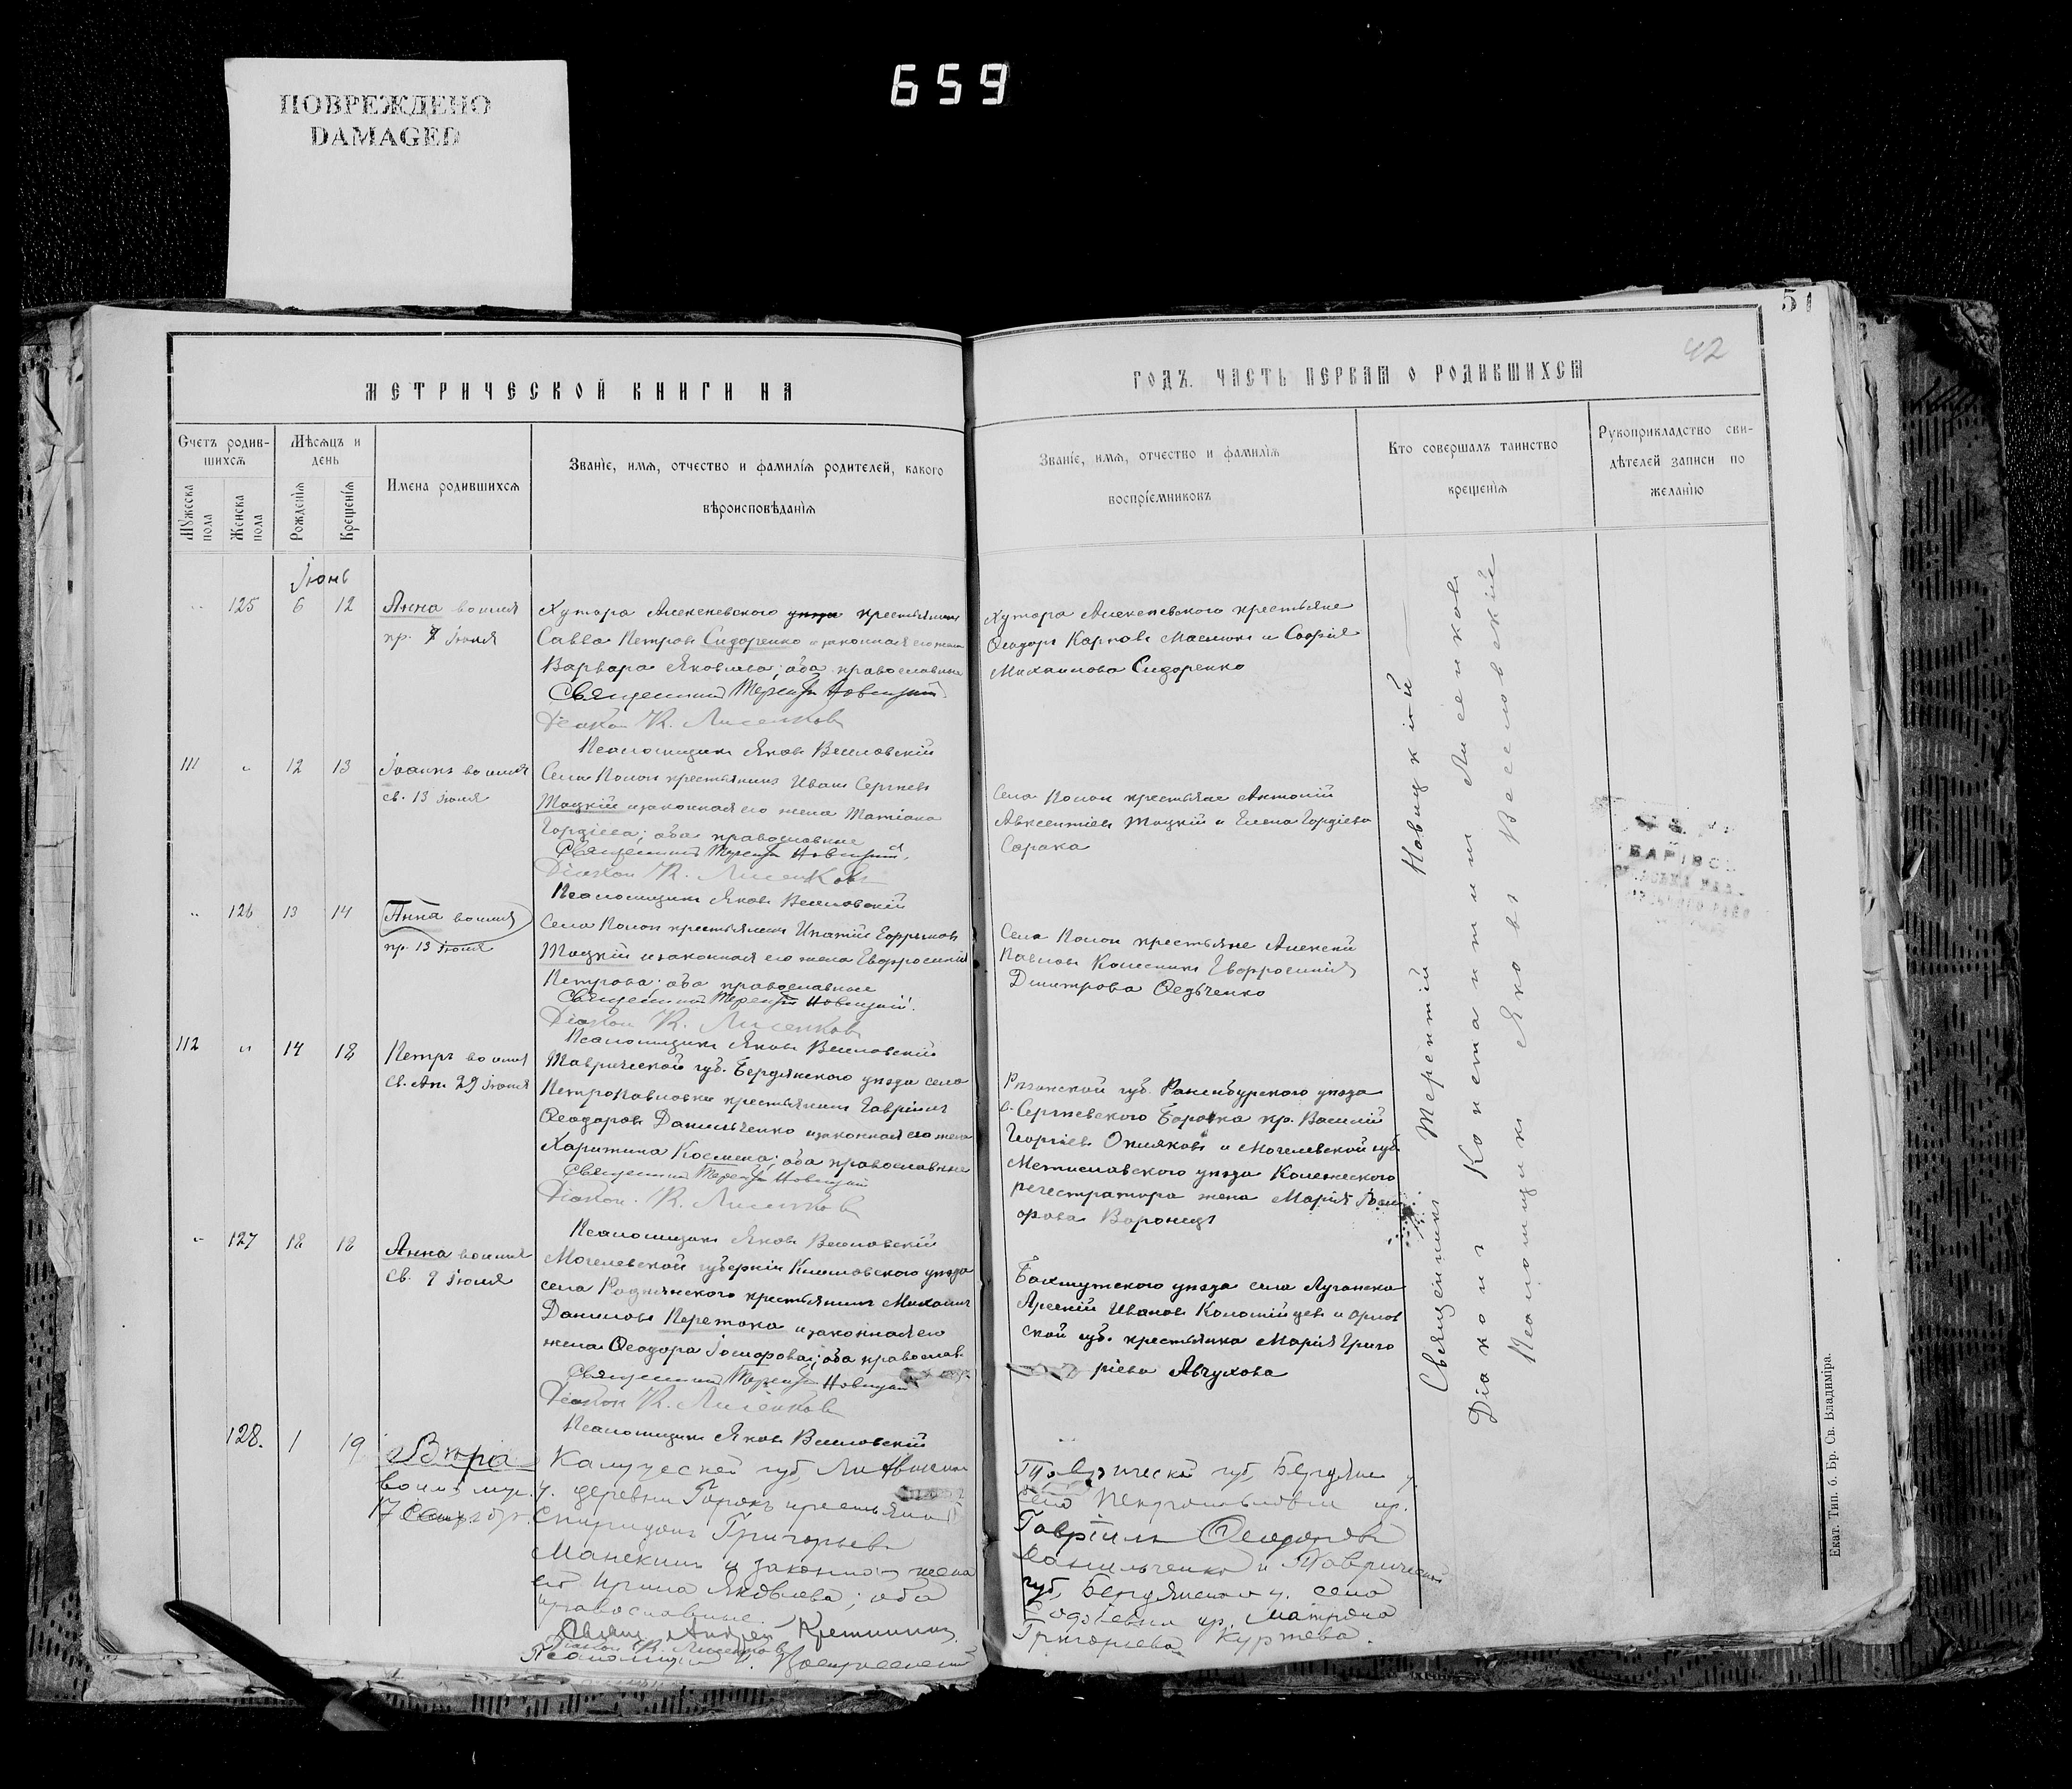 659
ПОВРЕЖДЕНО
DAMAGED
51
42
МЕТРИЧЕСКОЙ КНИГИ НА
ГОДЪ. ЧАСТЬ ПЕРВАЯ О РОДИВШИХСЯ
Счетъ родив-
шихся
Мѣсяцъ и
день
Мужеска
пола
Женска
пола
Рожденія
Крещенія
Имена родившихся
Званіе, имя, отчество и фамилія родителей, какого
вѣроисповѣданія
Званіе, имя, отчество и фамилія
воспріемниковъ
Кто совершалъ таинство
крещенія
Рукоприкладство сви-
дѣтелей записи по
желанію
Іюнь
125 6 12
Анна во имя
пр. 7 Іюня
Хутора Алексѣевского крестьянинъ
Савва Петровъ Сидоренко и законная его жена
Варвара Яковлева; оба православные
Священникъ Терентій Новицкій
Діаконъ К. Лисенковъ
Псаломщикъ Яковъ Веселовскій
Хутора Алексѣевского крестьяне
Ѳеодоръ Карповъ Маслюкъ и Софія
Михаилова Сидоренко
111 " 12 13
Іоаннъ во имя
св. 13 Іюня
Села Попом крестьянинъ Иванъ Сергѣевъ
Тоцкій и законная его жена Татіана
Гордіева; оба православные
Священникъ Терентій Новицкій
Діаконъ К. Лисенковъ
Псаломщикъ Яковъ Веселовскій
крестьяне Антоній
Авксентіевъ Тоцкій и Елена Гордіева
Сорока
" 126 13 14
Анна во имя
пр. 13 Іюня
крестьянинъ Ипатій Ефремовъ
Тоцкій и законная его жена Евфросинія
Петрова; оба православные
Священникъ Терентій Новицкій
Діаконъ К. Лисенковъ
Псаломщикъ Яковъ Веселовскій
крестьяне Алексѣй
Павловъ Колесникъ Евфросинія
Димитрова Ѳедьченко
112 " 14 18
Петръ во имя
Св. Ап. 29 Іюня
Таврической губ. Бердянского уѣзда села
Петропавловки крестьянинъ Гавріилъ
Ѳеодоровъ Данильченко и законная его жена
Харитина Космина; оба православные
Священникъ Терентій Новицкій
Діаконъ К. Лисенковъ
Псаломщикъ Яковъ Веселовскій
Рязанской губ. Раненбургского уѣзда
с. Сергѣевского Боровка кр. Василій
Георгіевъ и Могилевской губ.
Мстиславского уѣзда Колежского
регестратора жена Марія
Воронецъ
" 127 18 18
Анна во имя
Св. 9 Іюня
Могилевской губерніи Климовского уѣзда
села крестьянинъ Михаилъ
Даниловъ Перетока и законная его
жена Ѳеодора оба православ.
Священникъ Терентій Новицкій
Діаконъ К. Лисенковъ
Псаломщикъ Яковъ Веселовскій
Бахмутского уѣзда села Луганска
Арсеній Ивановъ Коломійцевъ и Орлов
ской губ. крестьянка Марія Григо
ріева Авчухова
128. 1 19
Вѣра
во имя муч.
17 Сентября
Калужской губ,
у. деревни крестьянинъ
Спиридонъ Григорьевъ
Манёкинъ и законная жена
его Ирина Яковлева; оба
православные.
Діаконъ К. Лисенковъ
Таврической губ, Бердянс. у.
село Петропавловки кр.
Гавріилъ Ѳеодоровъ
Данильченко и Таврической
губ, Бердянского у. села
Софіевки кр, Матрона
Григорьева Куртева.
Священникъ Терентій Новицкій
Діаконъ Константинъ Лисенковъ
Псаломщикъ Яковъ Веселовскій
Екат. Тип. б. Бр. Св. Владиміра.